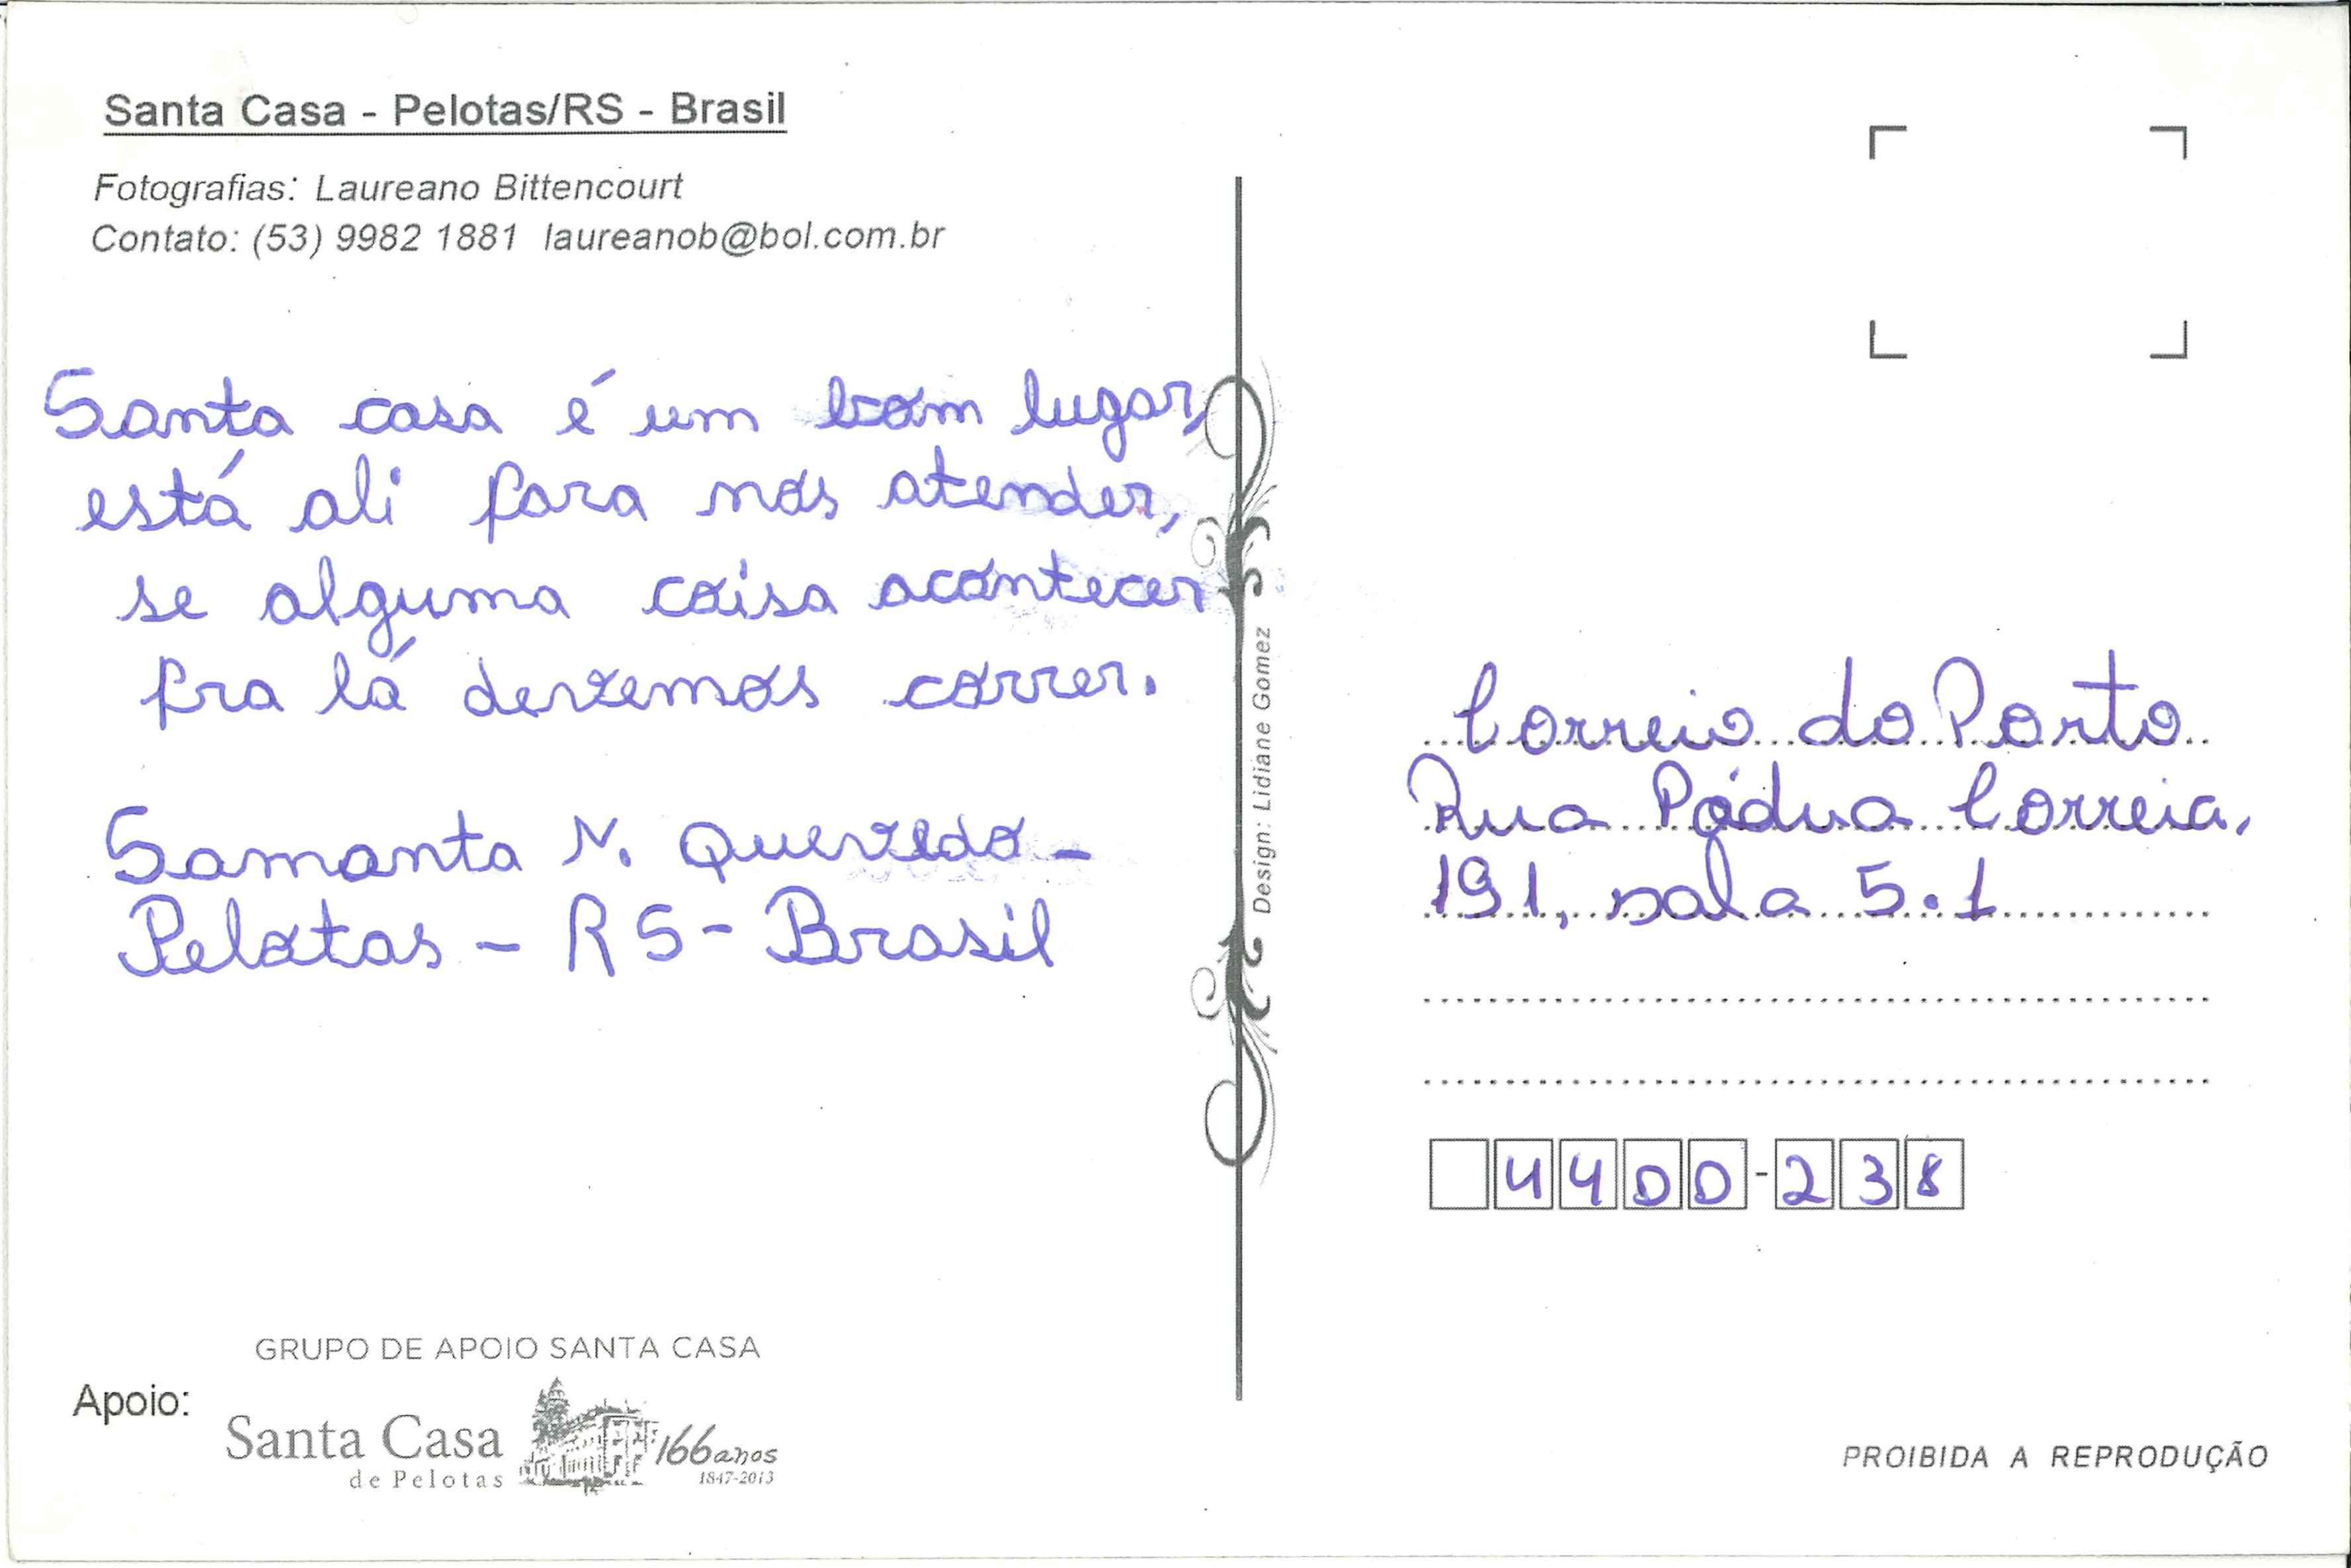 Santa Casa - Pelotas/RS - Brasil
Fotografias: Laureano Bittencourt
Contato: (53) 9982 1881 laureanob@bol.com.br
Santa casa é um bom lugar,
está ali para nos atender,
se alguma coisa acontecer
pra lá devemos correr.
Samanta N. Quevedo -
Pelotas - RS - Brasil
GRUPO DE APOIO SANTA CASA
Apoio:
Santa Casa
de Pelotas
166 anos
1847-2013
Design: Lidiane Gomez
Correio do Porto
Rua Pádua Correia,
191, sala 5.1
4400-238
PROIBIDA A REPRODUÇÃO